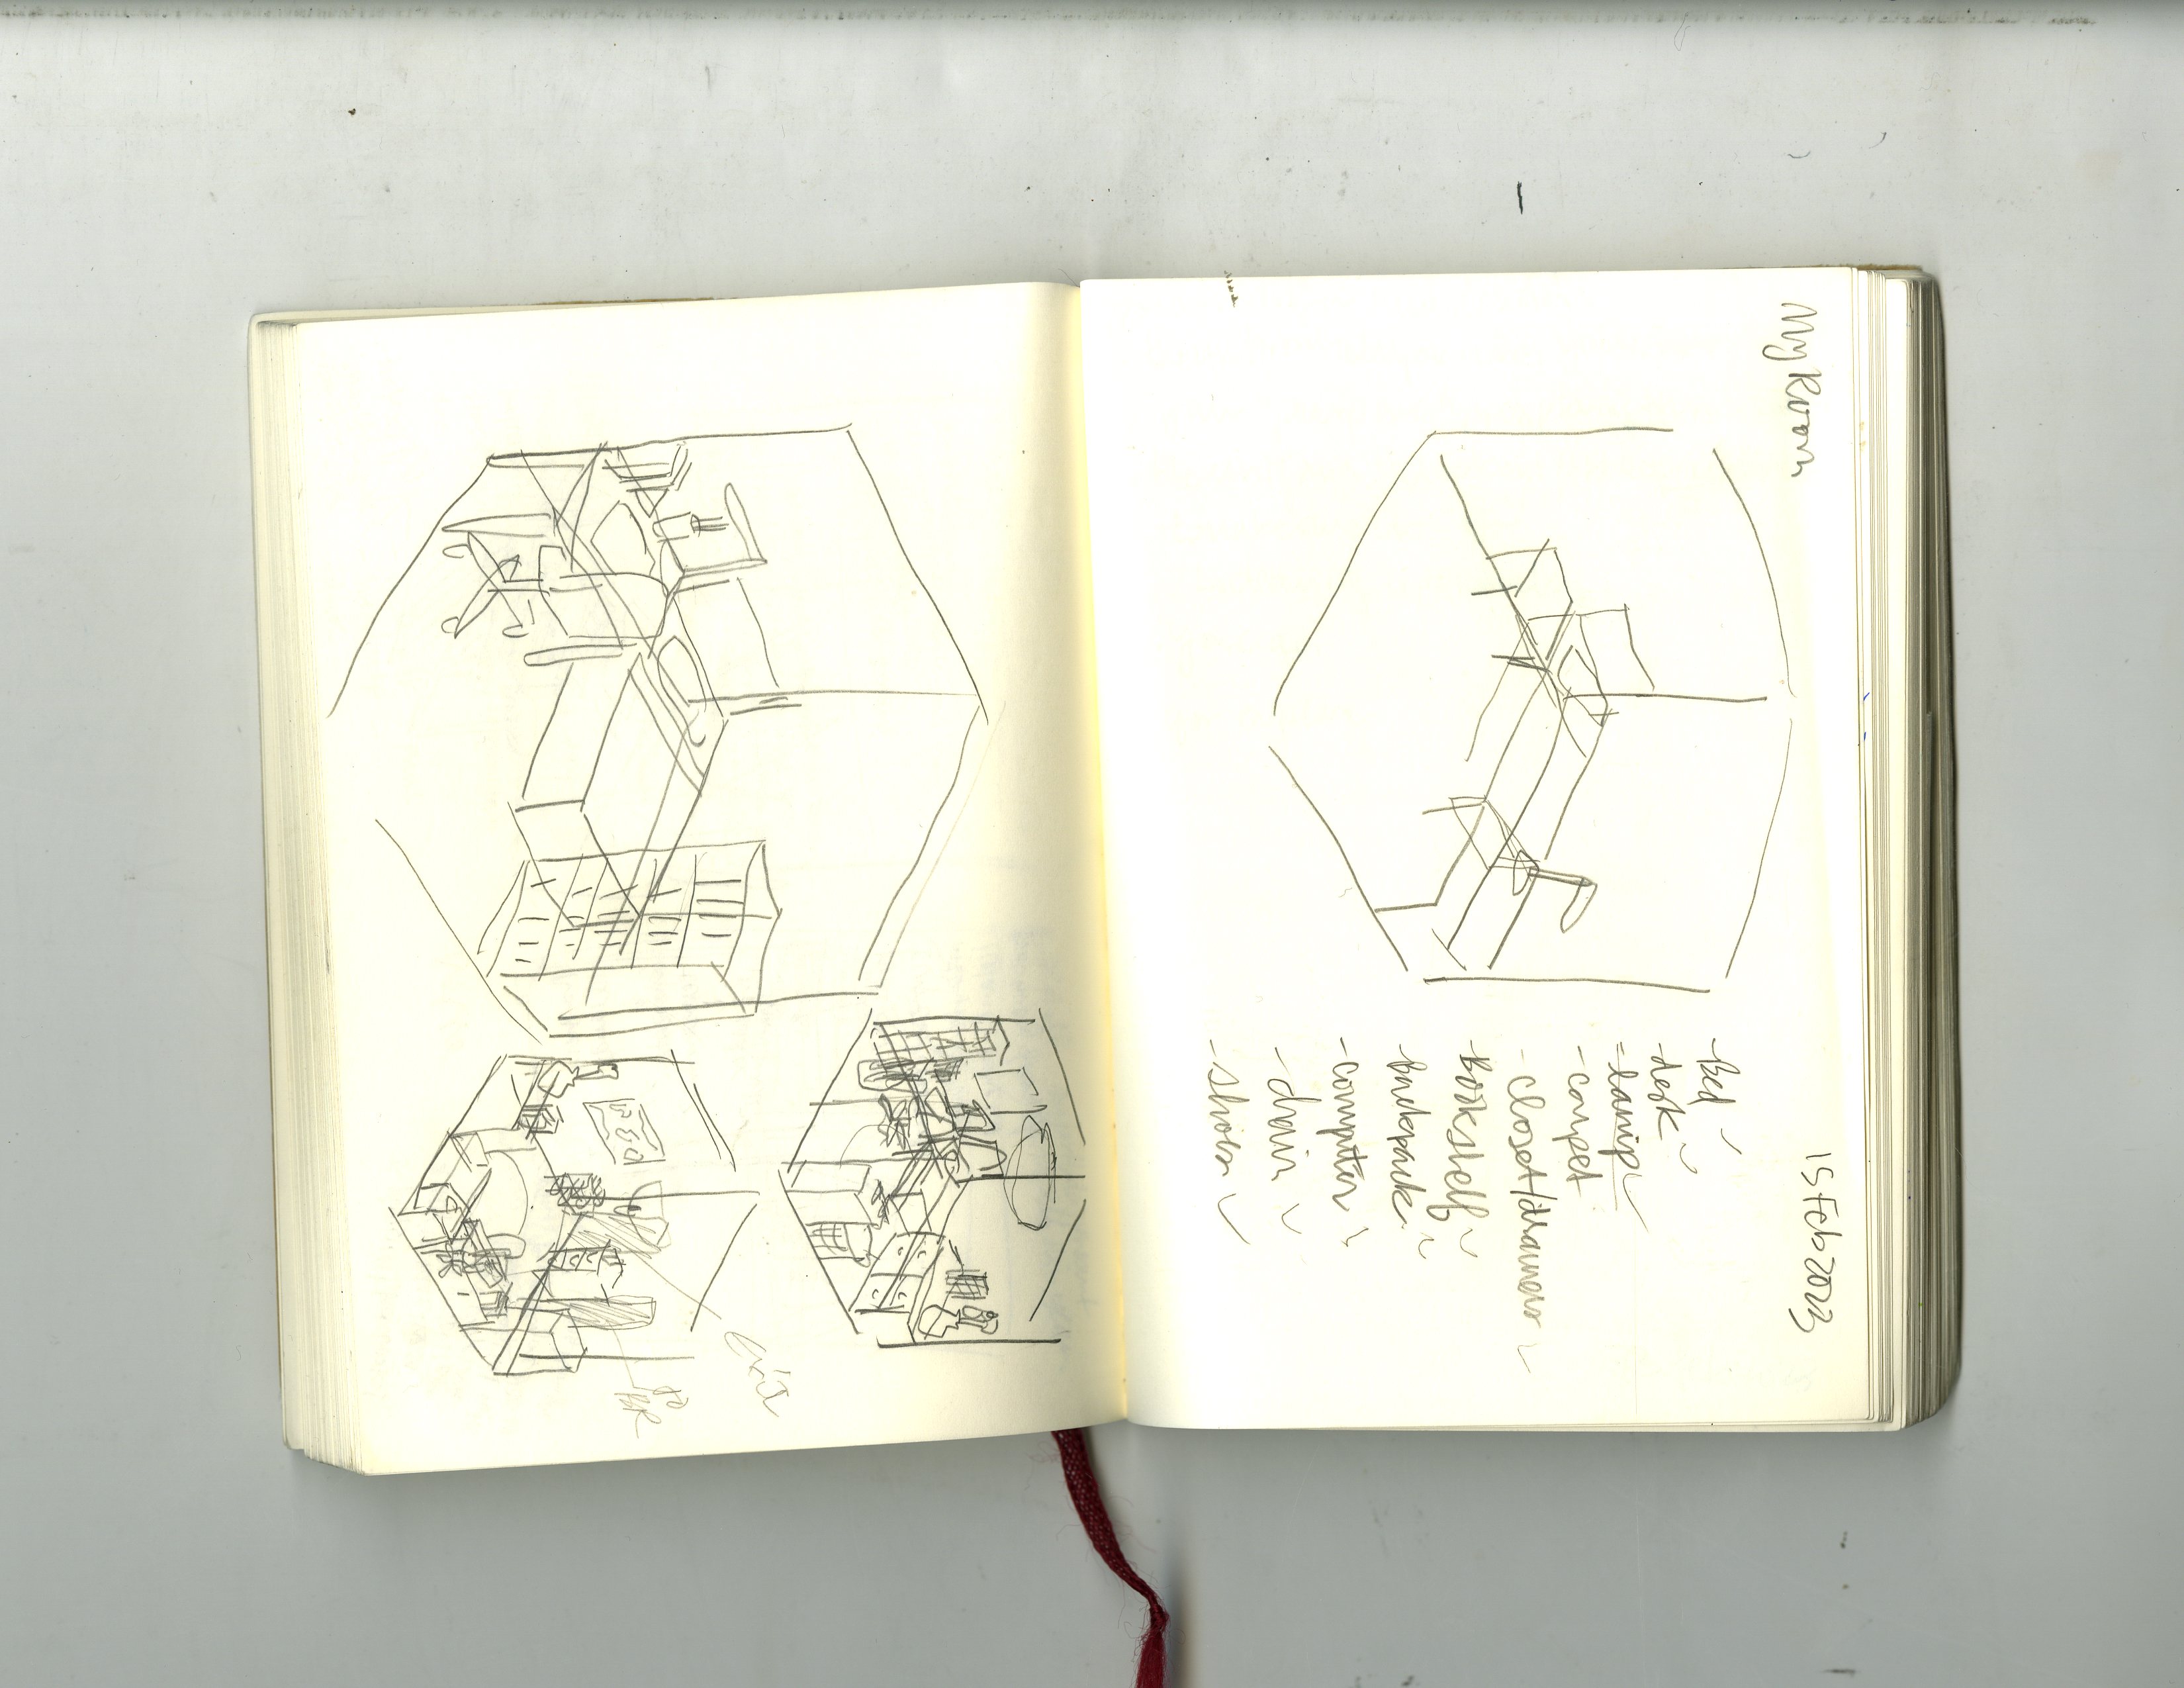 My Room
15 Feb 2023
-Bed ✓
-desk ✓
-lamp ✓
-carpet
-closet/drawers ✓
-bookshelf ✓
-backpack ✓
-computer ✓
-chair ✓
Exit
to
BR